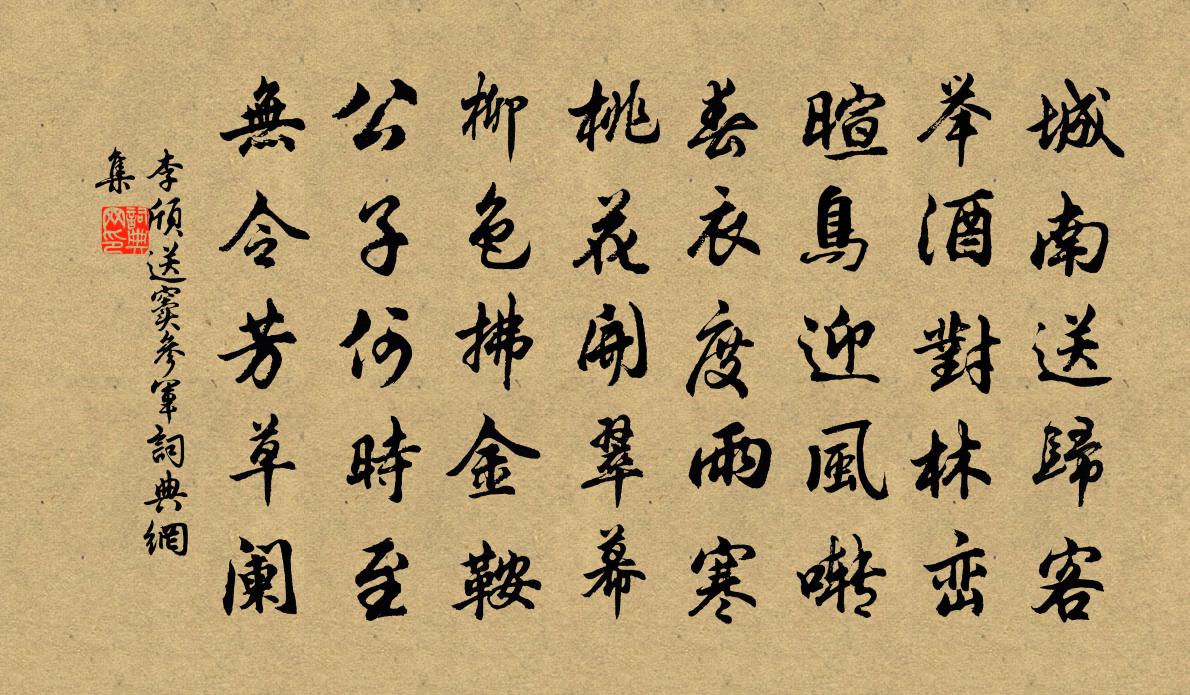 城南送歸客
举酒對林峦
暄鳥迎風啭
春衣度雨寒
桃花開翠幕
柳色拂金鞍
公子何時至
無令芳草阑
李頎送窦參軍詞典網
集
詞典
网印